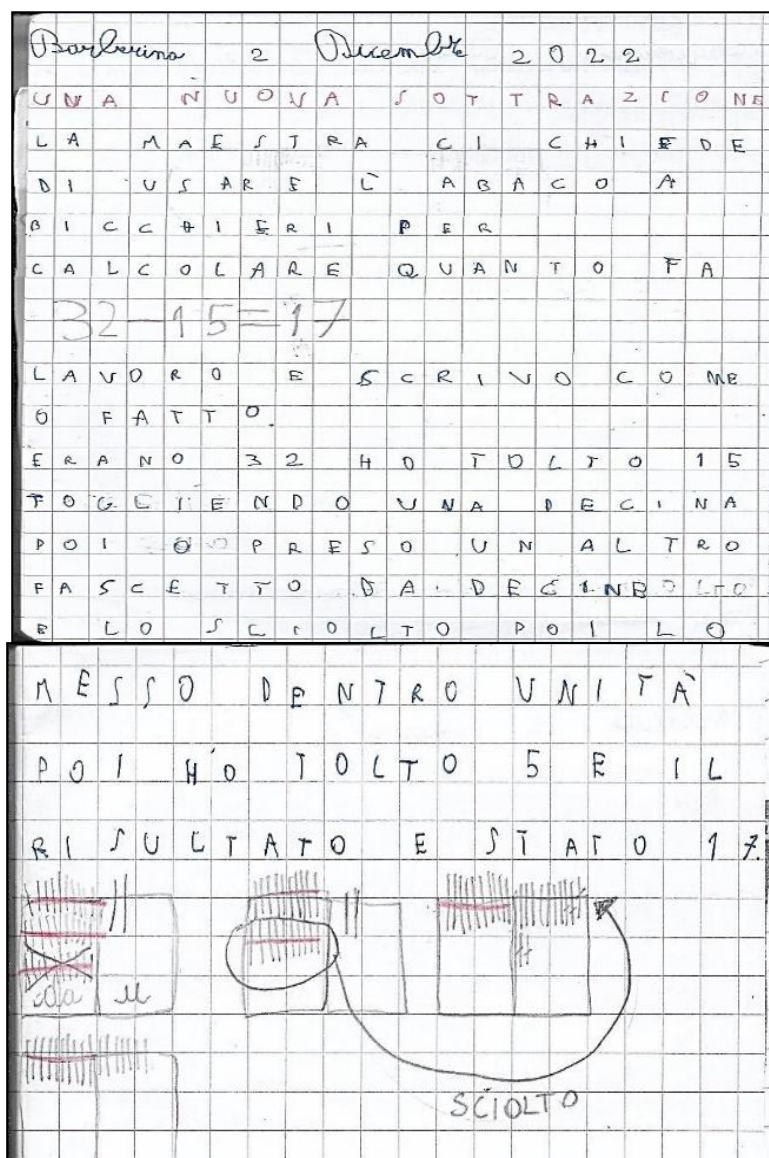 Barberino 2 Dicembre 2022
UNA NUOVA SOTTRAZIONE
LA MAESTRA CI CHIEDE
DI USARE L ABACO A
BICCHIERI PER
CALCOLARE QUANTO FA
32-15=17
LAVORO E SCRIVO COME
O FATTO.
ERANO 32 HO TOLTO 15
TOGLIENDO UNA DECINA
POI O PRESO UN ALTRO
FASCETTO DA DECINE
E LO SCIOLTO POI LO
MESSO DENTRO UNITÀ
POI HO TOLTO 5 E IL
RISULTATO E STATO 17.
da u
SCIOLTO